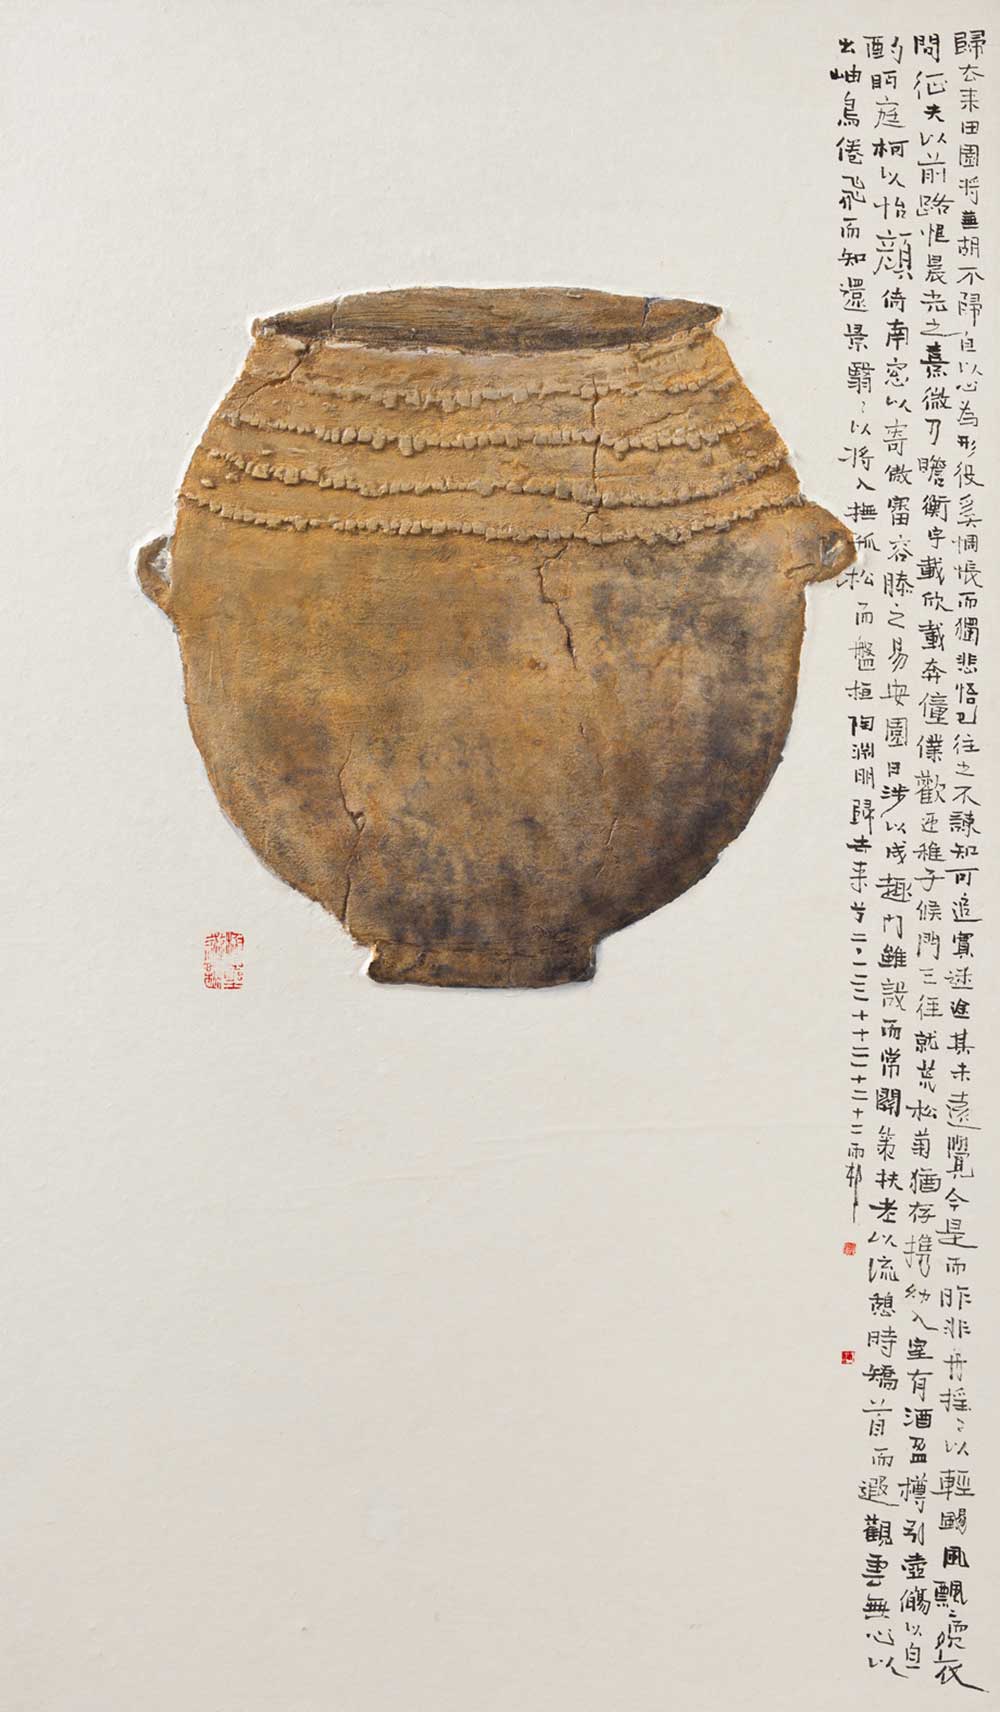 歸去来田園将蕪胡不歸自以心為形役奚惆悵而獨悲悟已往之不諫知可追實迷途其未遠覺今是而昨非舟摇〻以輕颺風飄〻而吹衣
問征夫以前路恨晨光之熹微乃瞻衡宇載欣載奔僮僕歡迎稚子候門三徑就荒松菊猶存携幼入室有酒盈樽引壺觴以自
酌眄庭柯以怡顔倚南窓以寄傲審容膝之易安園日涉以成趣門雖設而常關策扶老以流憩時矯首而遐觀雲無心以
出岫鳥倦飛而知還景翳〻以将入撫孤松而盤桓陶淵明歸去来兮